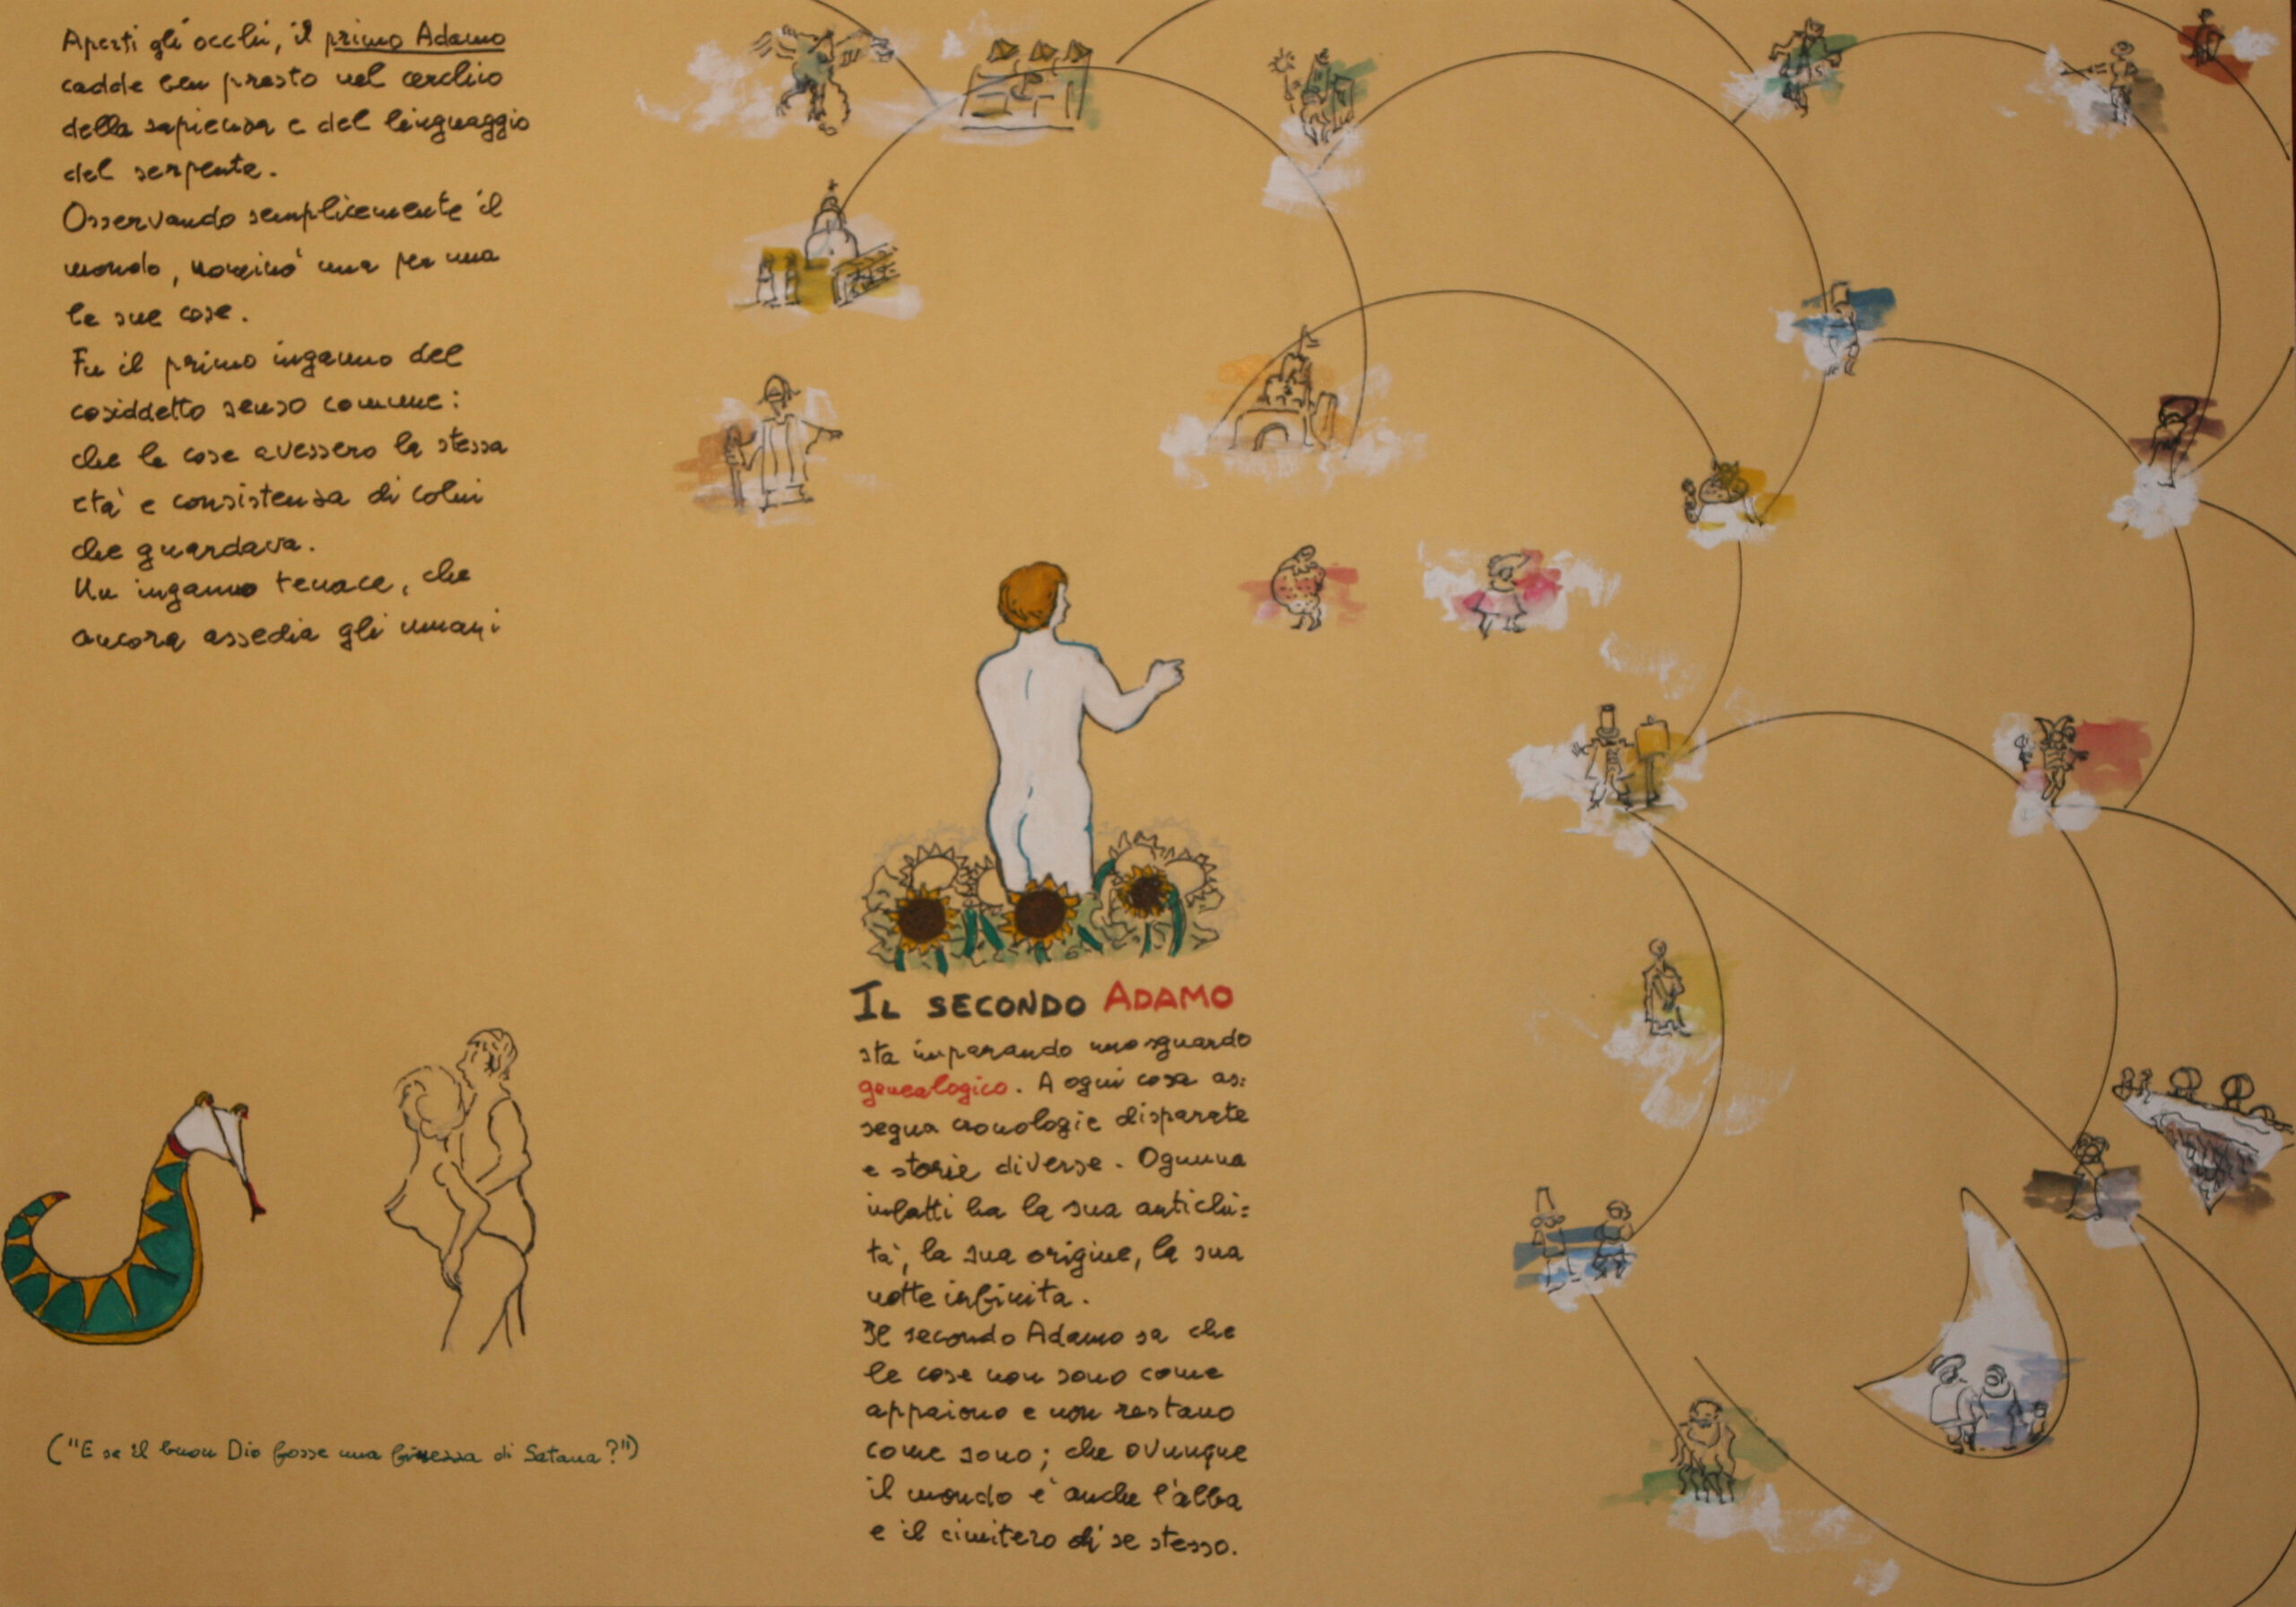 Aperti gli occhi, il primo Adamo
cadde ben presto nel cerchio
della sapienza e del linguaggio
del serpente.
Osservando semplicemente il
mondo, nominò una per una
le sue cose.
Fu il primo inganno del
cosiddetto senso comune:
che le cose avessero la stessa
età e consistenza di colui
che guardava.
Un inganno tenace, che
ancora assedia gli umani
("E se il buon Dio fosse una finezza di Satana?")
IL SECONDO ADAMO
sta imparando uno sguardo
genealogico. A ogni cosa as=
segna cronologie disparate
e storie diverse. Ognuna
infatti ha la sua antichi=
tà, la sua origine, la sua
notte infinita.
Il secondo Adamo sa che
le cose non sono come
appaiono e non restano
come sono; che ovunque
il mondo è anche l'alba
e il cimitero di se stesso.